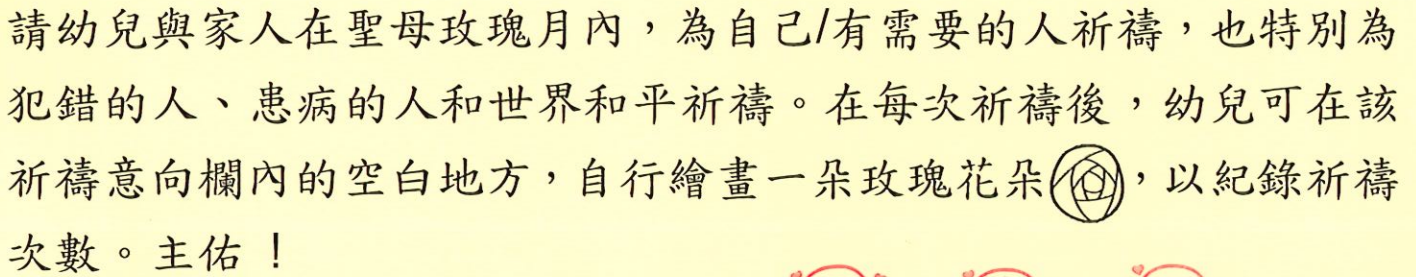 請幼兒與家人在聖母玫瑰月內，為自己/有需要的人祈禱，也特別為
犯錯的人、患病的人和世界和平祈禱。在每次祈禱後，幼兒可在該
祈禱意向欄內的空白地方，自行繪畫一朵玫瑰花朵，以紀錄祈禱
次數。主佑！